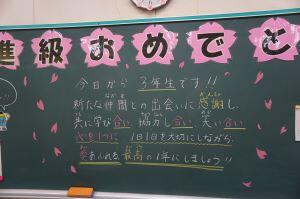 進級おめでと
今日から 3年生です!!
新たな仲間との出会いに感謝し、
共に学び合い、協力し合い、笑い合い
心を1つに 1日1日を大切にしながら、
笑あふれる 最高の1年にしましょう!!